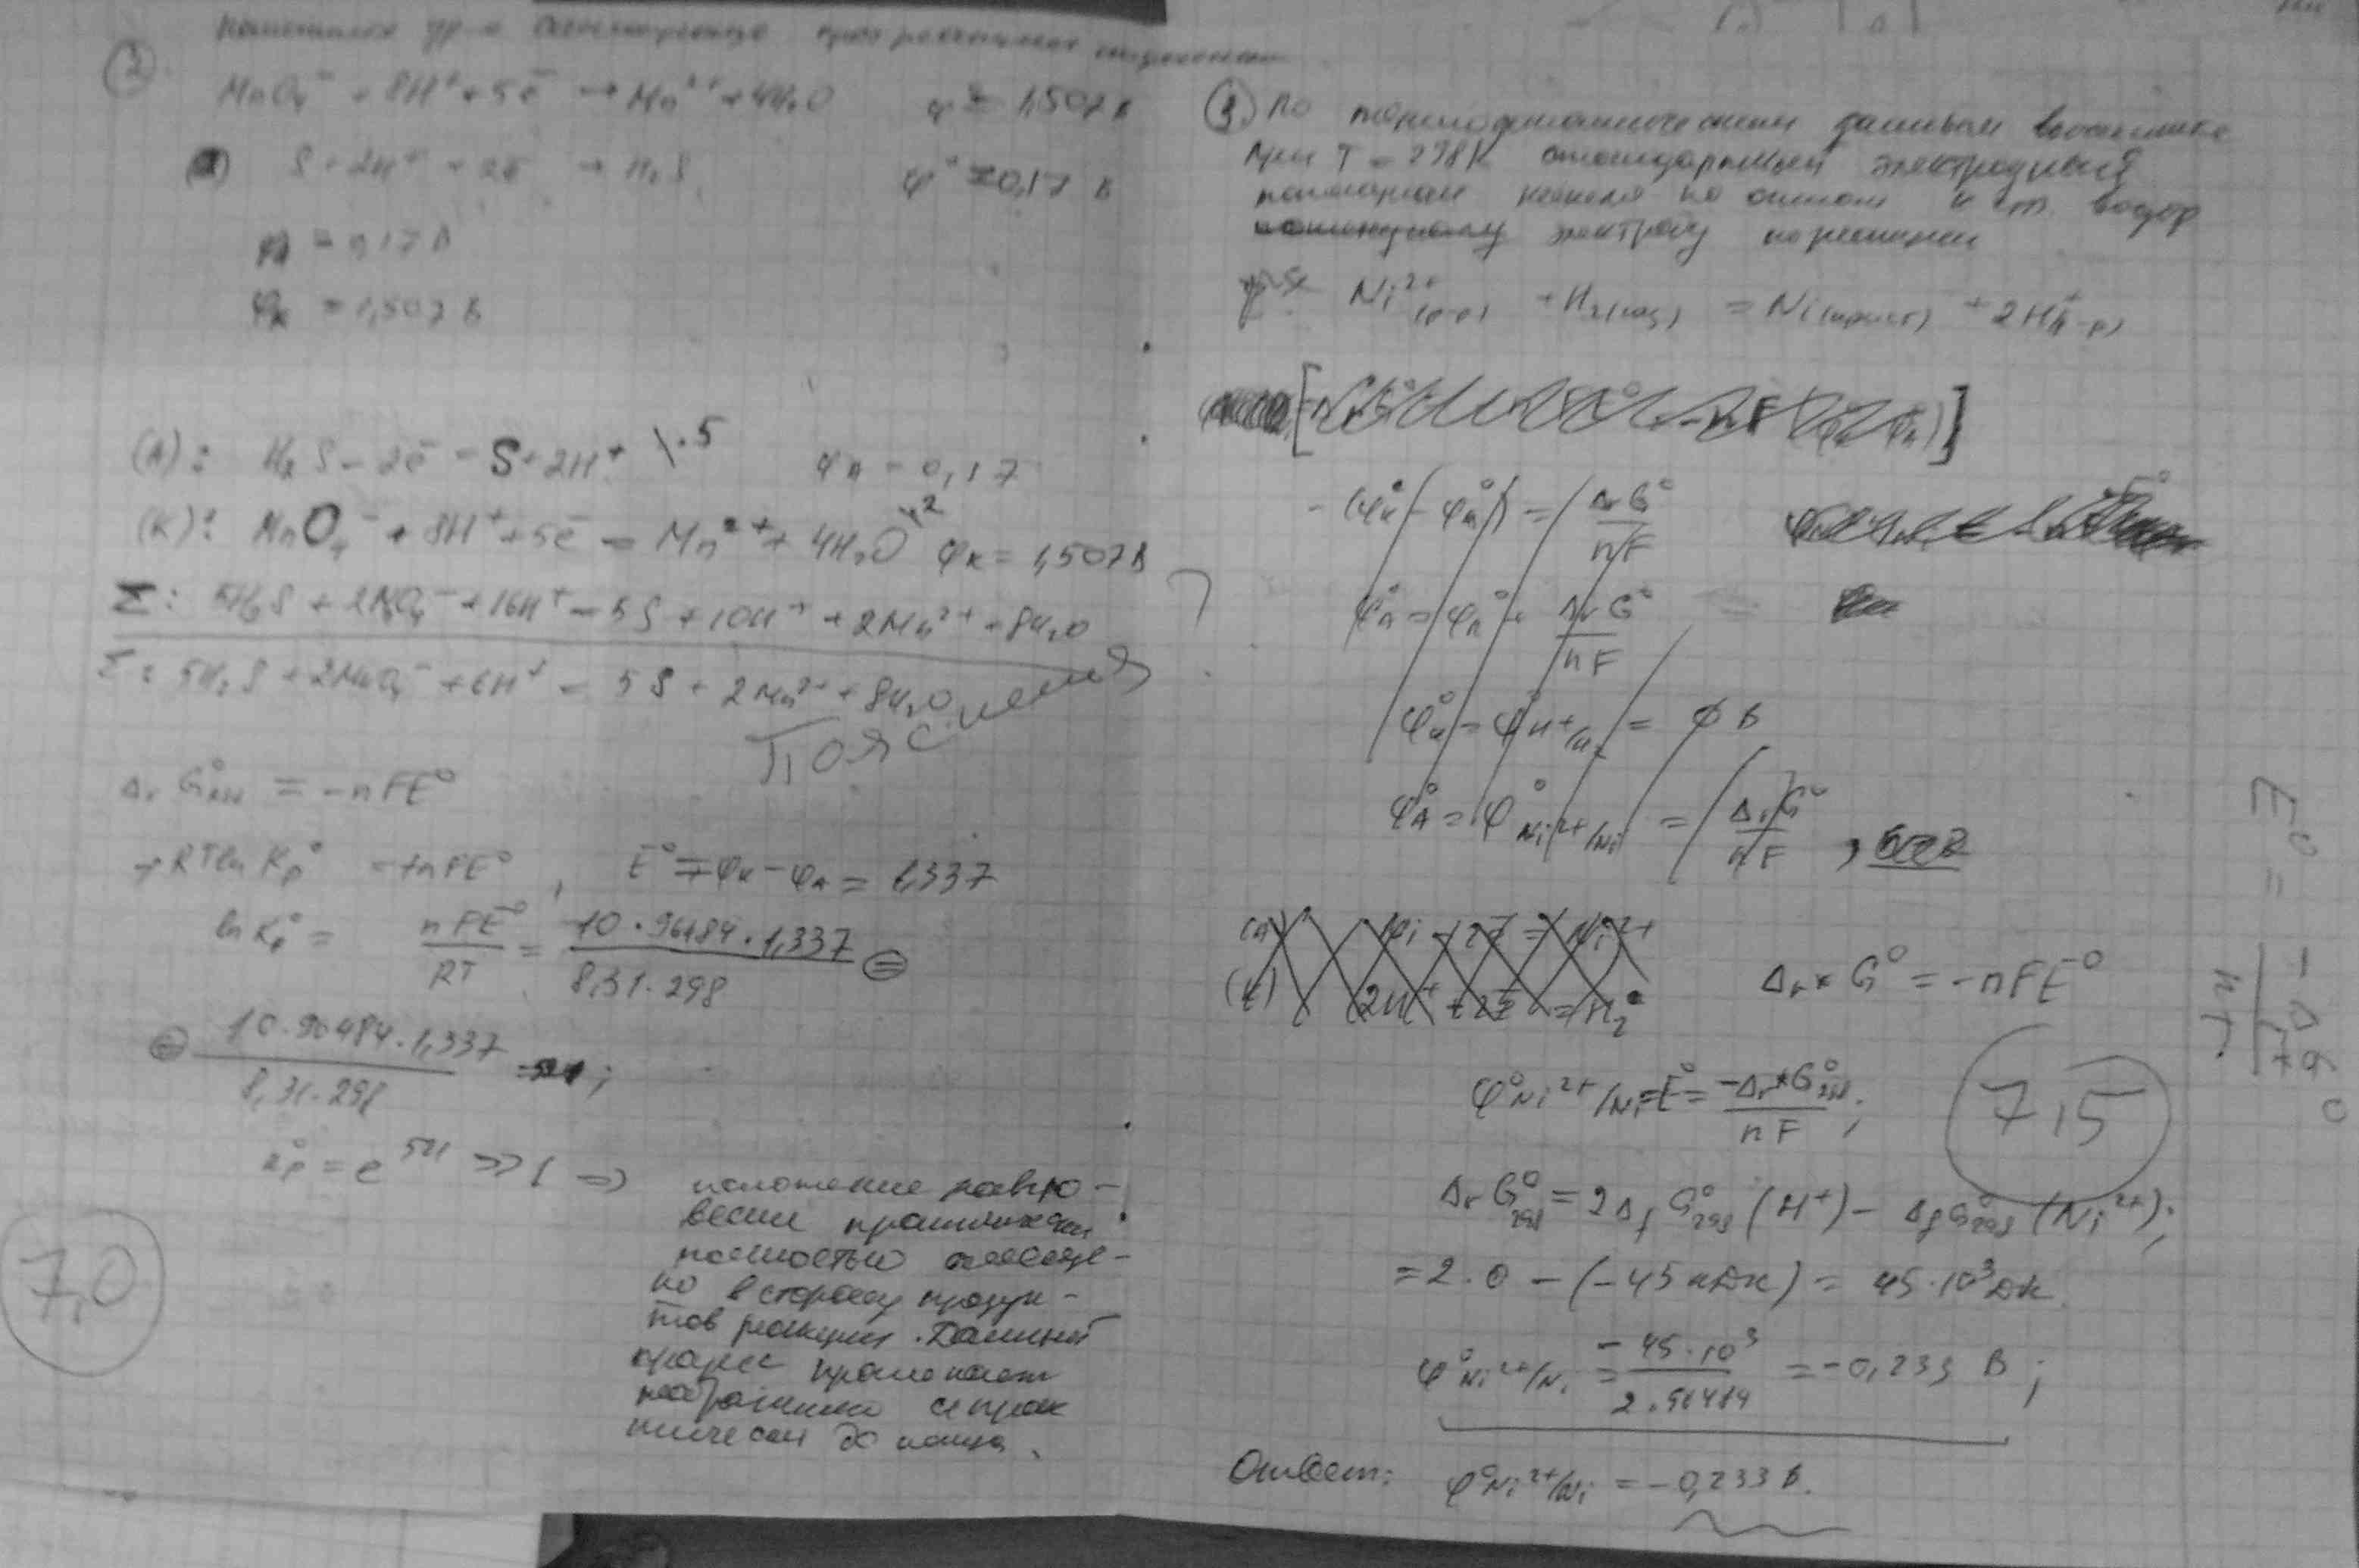 2
MnO₄⁻ + 8H⁺ + 5ē → Mn²⁺ + 4H₂O φ° = 1,507 В
S + 2H⁺ + 2ē → H₂S φ° = 0,17 В
φА = 0,17 В
φк = 1,507 В
(А): H₂S - 2ē = S + 2H⁺ \·5 φА = 0,17
(К): MnO₄⁻ + 8H⁺ + 5ē = Mn²⁺ + 4H₂O ·2 φк = 1,507 В
Σ: 5H₂S + 2MnO₄⁻ + 16H⁺ = 5S + 10H⁺ + 2Mn²⁺ + 8H₂O
Σ: 5H₂S + 2MnO₄⁻ + 6H⁺ = 5S + 2Mn²⁺ + 8H₂O
ΔrG°298 = -nFE°
-RTlnKp° = -nFE°, E° = φк - φА = 1,337
lnKp° = nFE°/RT = 10·96484·1,337/8,31·298 =
= 10·96484·1,337/8,31·298 ;
Kp° = e⁵²¹ >> 1 =>
положение равно-
весия практически
полностью смеще-
но в сторону продук-
тов реакции. Данный
процесс протекает
необратимо и прак
тически до конца.
7,0
3. По термодинамическим данным вычислите
при T = 298K стандартный электродный
потенциал никеля по отнош к ст. водор
электроду
Ni²⁺(р-р) + H₂(газ) = Ni(крист) + 2H⁺(р-р)
-(φк° - φА°) = ΔrG°/nF
ΔrG°/nF
φ°H⁺/H₂ = 0 В
φА° = φ°Ni²⁺/Ni = ΔrG°/nF ,
(А) Ni - 2ē = Ni²⁺
(К) 2H⁺ + 2ē = H₂°
Δr*G° = -nFE°
φ°Ni²⁺/Ni = E° = -Δr*G°298/nF ;
7,5
ΔrG°298 = 2ΔfG°298(H⁺) - ΔfG°298(Ni²⁺);
= 2·0 - (-45 кДж) = 45·10³ Дж
φ°Ni²⁺/Ni = -45·10³/2·96484 = -0,233 В ;
Ответ: φ°Ni²⁺/Ni = -0,233 В.